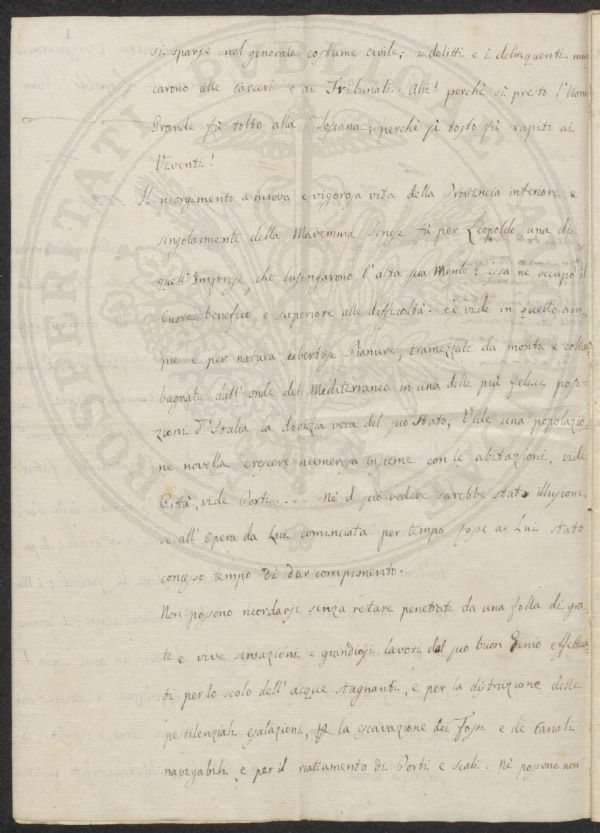 si sparse nel generale costume civile; i delitti e i delinquenti man
carono alle carceri e ai Tribunali. Ahi! perchè si presto l'Uomo
Grande fù tolto alla Toscana, perchè sì tosto fù rapito ai
Viventi!
Il risorgimento a nuova e vigorosa vita della Provincia inferiore e
singolarmente della Maremma Senese fù per Leopoldo una di
quell'Imprese, che lusingarono l'alta sua Mente: essa ne occupò il
Cuore benefico e superiore alle difficoltà. Ei vide in quelle am-
pie e per natura ubertose Pianure, tramezzate da monti e colline
bagnate dall'onde del Mediterraneo in una delle più felici posi-
zioni d'Italia la dovizia vera del suo Stato; Vide una popolazio
ne novella crescere numerosa insieme con le abitazioni, vide
Città, vide Porti..... Nè il suo vedere sarebbe stato illusione,
se all'Opera da Lui cominciata per tempo fosse a Lui stato
concesso tempo di dar compimento.
Non possono ricordarsi senza restare penetrati da una folla di gra-
te e vive sensazioni i grandiosi lavori del suo buon Genio effettua-
ti per lo scolo dell'acque stagnanti, e per la distruzione delle
pestilenziali esalazioni, la escavazione dei Fossi e de Canali
navigabili e per il riattamento di Porti e Scali. Nè possono non